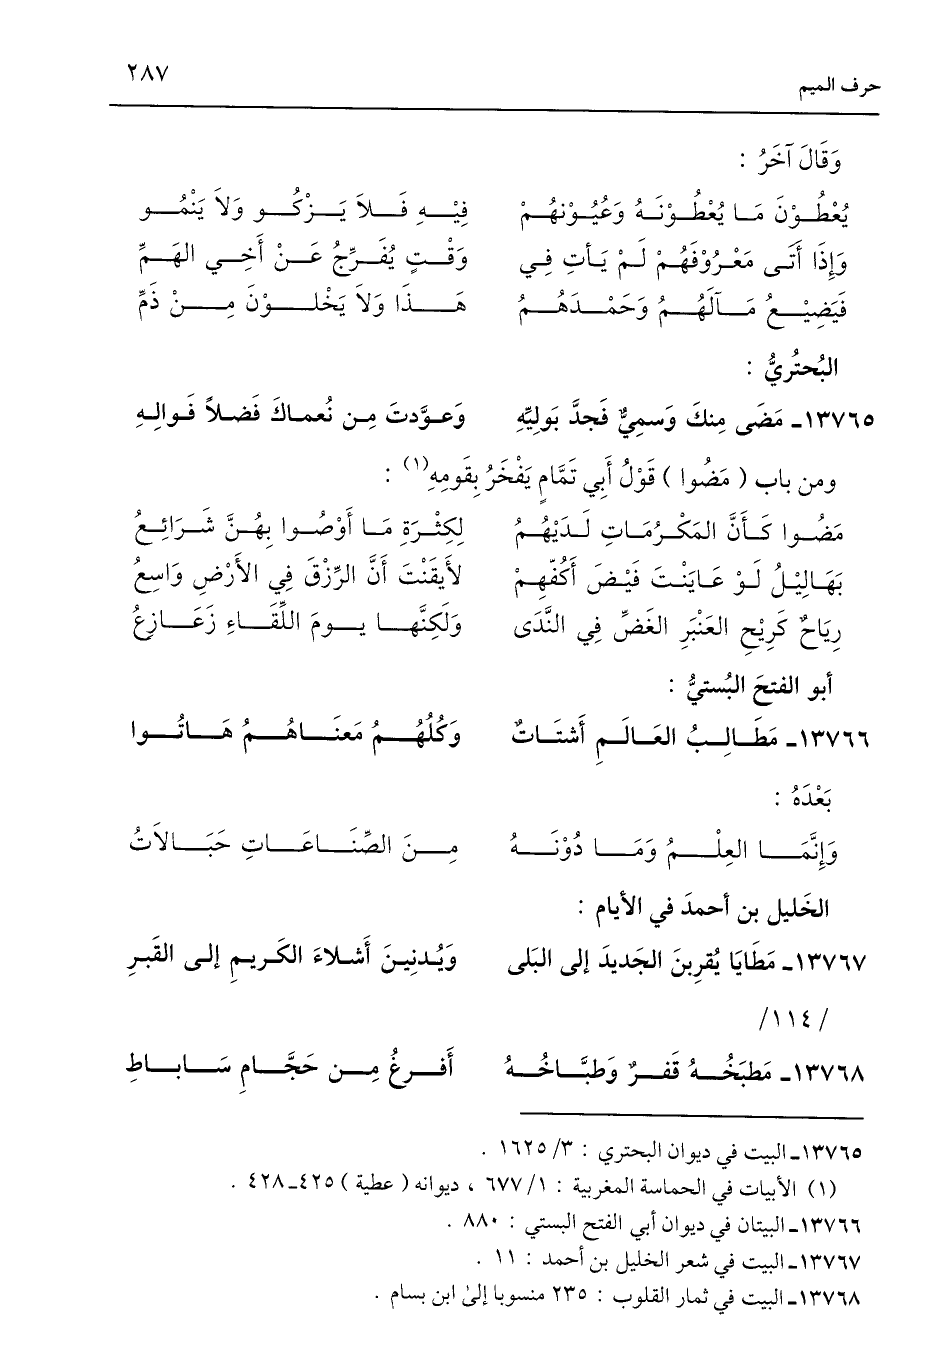 حرف الميم ٢٨٧
وَقَالَ آخَرُ :
يُعْطُوْنَ مَا يُعْطُوْنَهُ وَعُيُوْنهُمْ فِيْهِ فَلاَ يَزْكُو وَلاَ يَنْمُو
وَإِذَا أَتَى مَعْرُوْفَهُمْ لَمْ يَأتِ فِي وَقْتٍ يُفَرِّجُ عَنْ أَخِي الهَمِّ
فَيَضِيْعُ مَالَهُمُ وَحَمْدَهُمُ هَذَا وَلاَ يَخْلُوْنَ مِنْ ذَمِّ
البُحتُريُّ :
١٣٧٦٥ـ مَضَى مِنكَ وَسمِيٌّ فَجدَّ بَوليِّهِ وَعوَّدتَ مِن نُعماكَ فَضلاً فَوالِهِ
ومن باب ( مَضُوا ) قَوْلُ أَبِي تَمَّامٍ يَفْخَرُ بِقَومِهِ(١) :
مَضُوا كَأَنَّ المَكْرُمَاتِ لَدَيْهُمُ لِكِثْرَةِ مَا أَوْصُوا بِهُنَّ شَرَائِعُ
بَهَالِيْلُ لَوْ عَايَنْتَ فَيْضَ أَكُفّهِمْ لأَيقَنْتَ أَنَّ الرِّزْقَ فِي الأَرْضِ وَاسِعُ
رِيَاحٌ كَرِيْحِ العَنْبَرِ الغَضِّ فِي النَّدَى وَلَكِنَّهَا يومَ اللِّقَاءِ زَعَازِعُ
أبو الفتحَ البُستيُّ :
١٣٧٦٦ـ مَطَالِبُ العَالَمِ أَشتَاتٌ وَكُلُهُمُ مَعنَاهُمُ هَاتُوا
بَعْدَهُ :
وَإِنَّمَا العِلْمُ وَمَا دُوْنَهُ مِنَ الصِّنَاعَاتِ حَبَالاَتُ
الخَليل بن أحمدَ في الأيام :
١٣٧٦٧ـ مَطَايَا يُقرِبنَ الجَديدَ إلى البَلَى وَيُدنِينَ أَشلاءَ الكَريمِ إلى القَبرِ
/ ١١٤/
١٣٧٦٨ـ مَطبَخُهُ قَفرٌ وَطبَّاخُهُ أَفرغُ مِن حَجَّامِ سَابَاطِ
١٣٧٦٥ـ البيت في ديوان البحتري : ٣/ ١٦٢٥ .
(١) الأبيات في الحماسة المغربية : ١/ ٦٧٧ ، ديوانه ( عطية ) ٤٢٥ـ٤٢٨ .
١٣٧٦٦ـ البيتان في ديوان أبي الفتح البستي : ٨٨٠ .
١٣٧٦٧ـ البيت في شعر الخليل بن أحمد : ١١ .
١٣٧٦٨ـ البيت في ثمار القلوب : ٢٣٥ منسوبا إلىٰ ابن بسام .